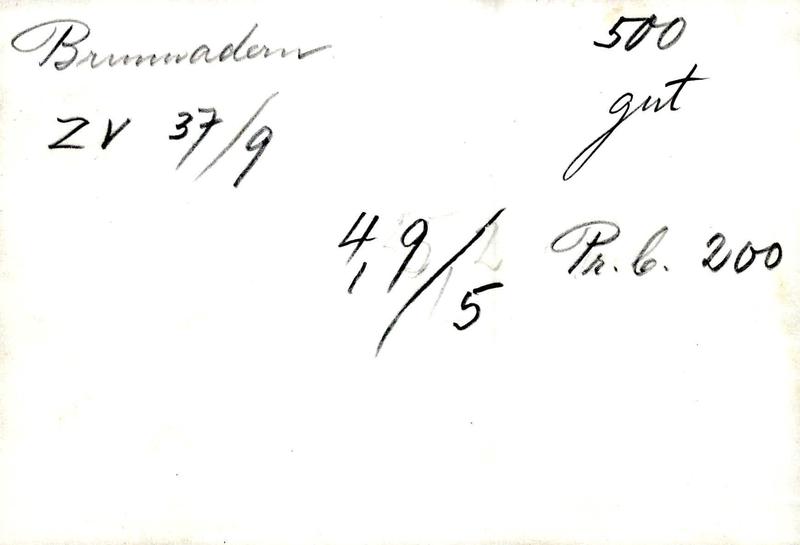 Brunnadern
500
gut
ZV 37/9
4,9/5
Pr. b. 200